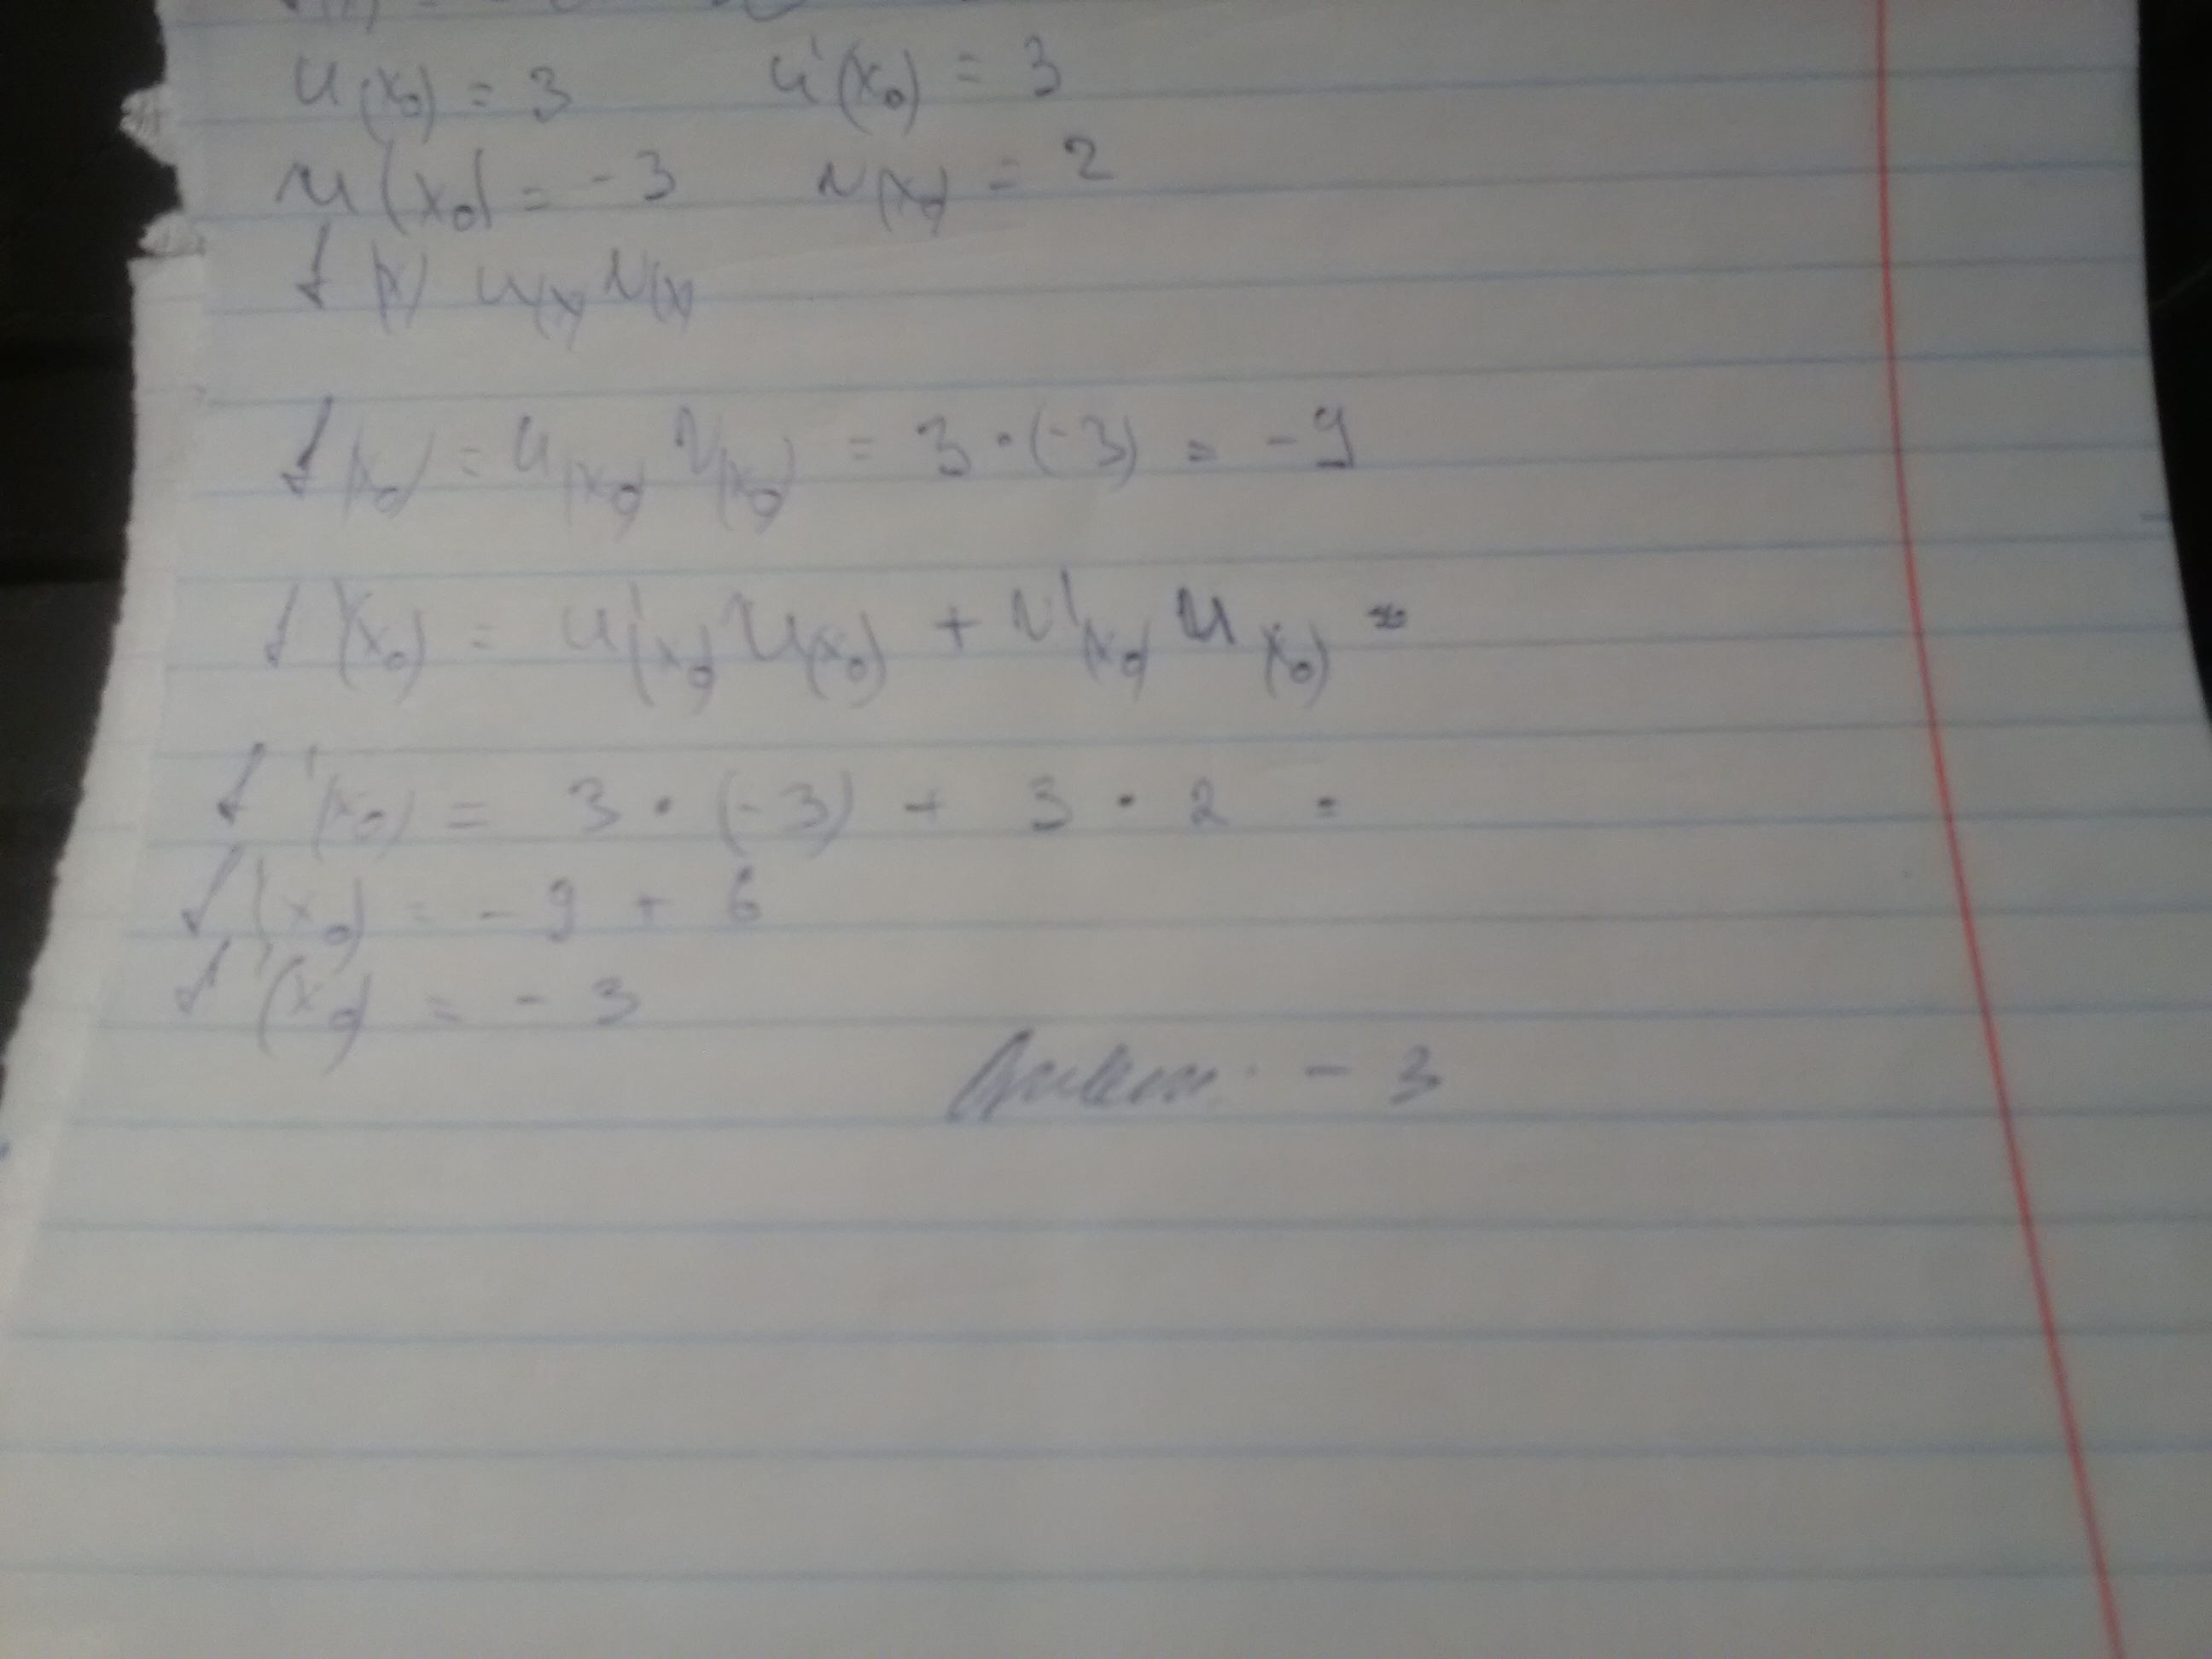 u(x₀) = 3 u'(x₀) = 3
u(x₀) = -3 v(x₀) = 2
f(x) u(x) v(x)
f(x₀) = u(x₀) v(x₀) = 3 · (-3) = -9
f'(x₀) = u'(x₀) v(x₀) + v'(x₀) u(x₀) =
f'(x₀) = 3 · (-3) + 3 · 2 =
f'(x₀) = -9 + 6
f'(x₀) = -3
Ответ: -3